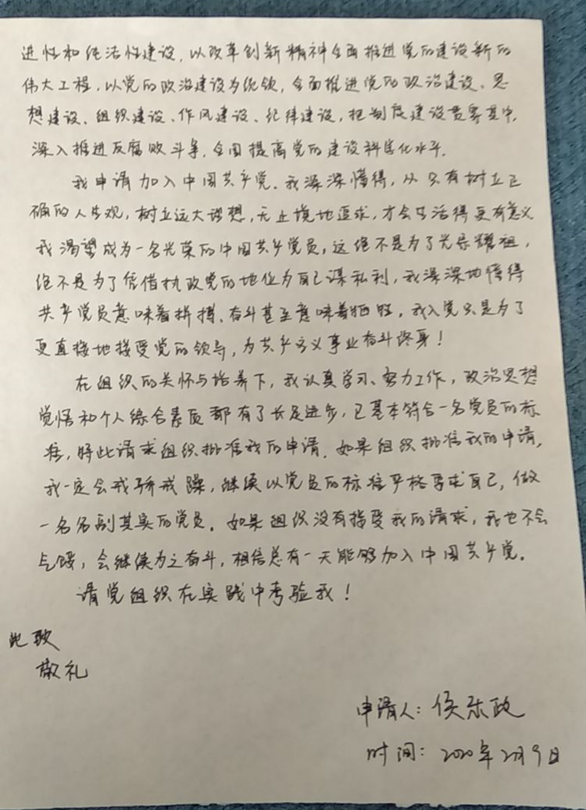 进性和纯洁性建设，以改革创新精神全面推进党的建设新的
伟大工程，以党的政治建设为统领，全面推进党的政治建设、思
想建设、组织建设、作风建设、纪律建设，把制度建设贯穿其中，
深入推进反腐败斗争，全面提高党的建设科学化水平。
我申请加入中国共产党。我深深懂得，从只有树立正
确的人生观，树立远大理想，无止境地追求，才会生活得更有意义
我渴望成为一名光荣的中国共产党员，这绝不是为了光宗耀祖，
绝不是为了凭借执政党的地位为自己谋私利，我深深地懂得
共产党员意味着拼搏、奋斗甚至意味着牺牲，我入党只是为了
更直接地接受党的领导，为共产主义事业奋斗终身！
在组织的关怀与培养下，我认真学习、努力工作，政治思想
觉悟和个人综合素质都有了长足进步，已基本符合一名党员的标
准，特此请求组织批准我的申请。如果组织批准我的申请，
我一定会戒骄戒躁，继续以党员的标准严格要求自己，做
一名名副其实的党员。如果组织没有接受我的请求，我也不会
气馁，会继续为之奋斗，相信总有一天能够加入中国共产党。
请党组织在实践中考验我！
此致
敬礼
申请人：侯乐政
时间：2020年2月9日